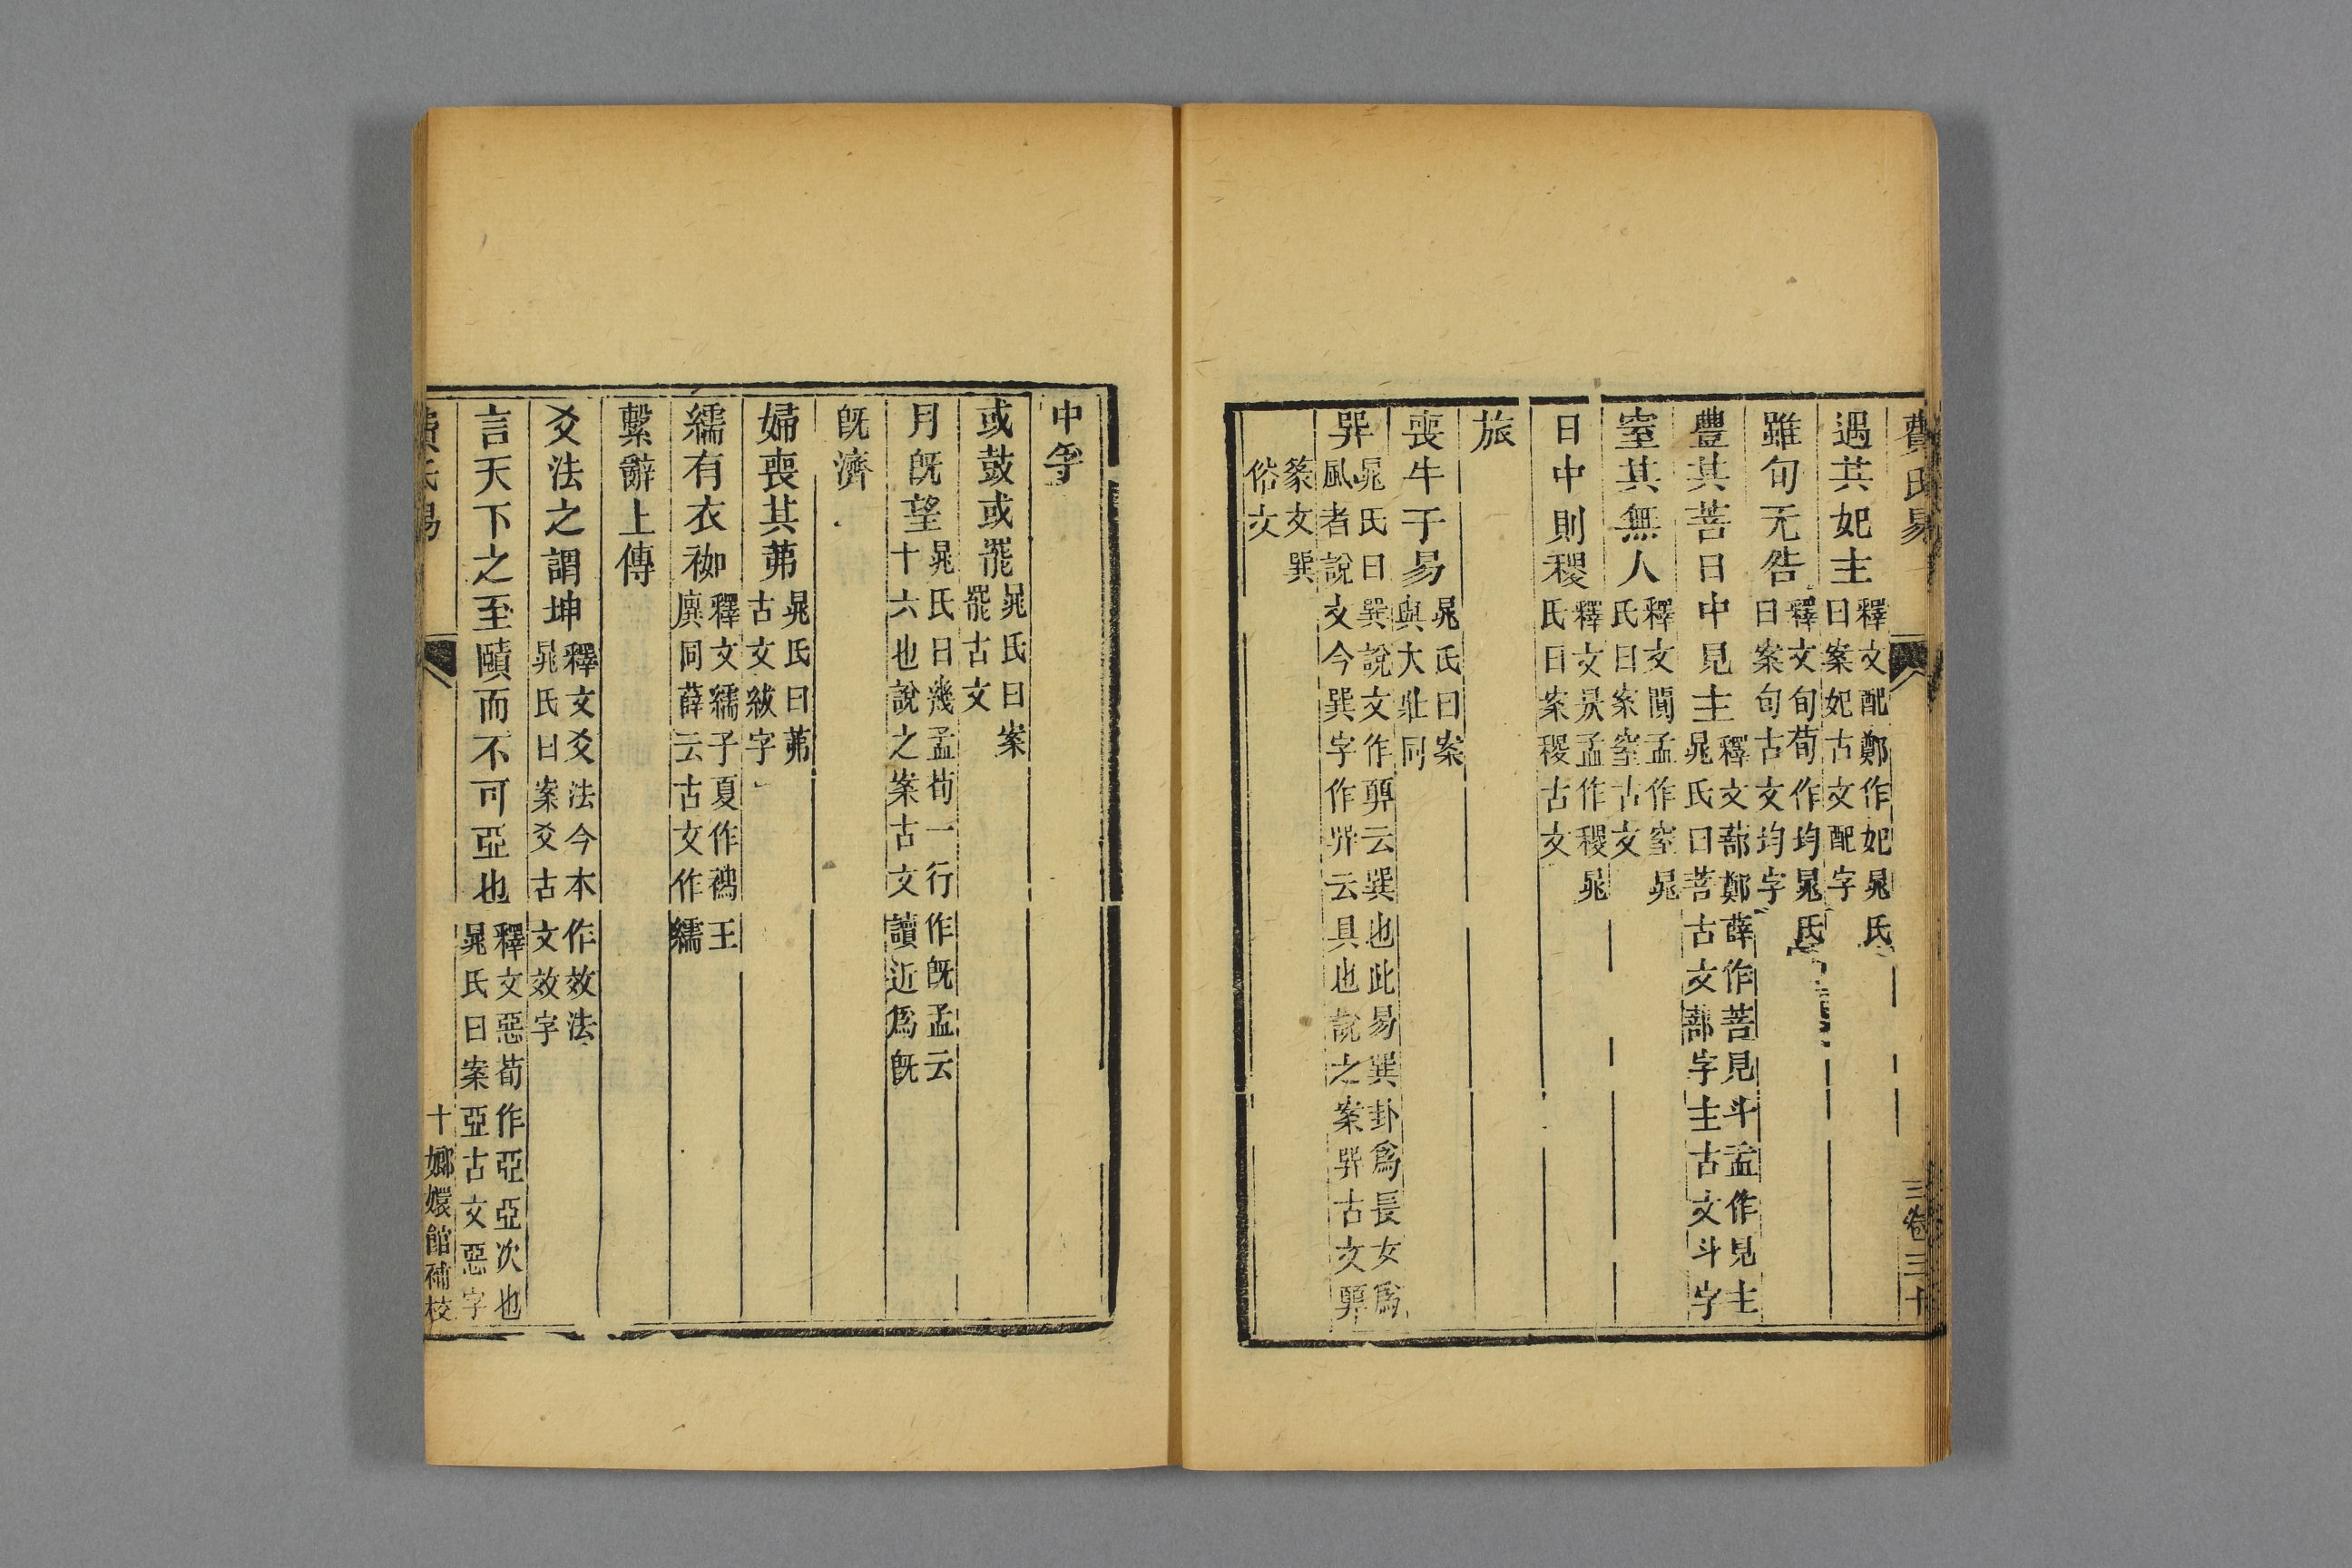 費氏易
卷三十
遇其妃主釋文配鄭作妃晁氏
曰案妃古文配字
雖旬无咎釋文旬荀作均晁氏
曰案旬古文均字
豐其菩日中見主釋文蔀鄭薛作菩見斗孟作見主
晁氏曰菩古文蔀字主古文斗字
窒其無人釋文闃孟作窒晁
氏曰案窒古文
日中則稷釋文昃孟作稷晁
氏曰案稷古文
旅
喪牛于易晁氏曰案
與大壯同
巺晁氏曰巽說文作顨云巽也此易巽卦爲長女爲
風者說文今巽字作巺云具也說之案巺古文顨
篆文巽
俗文
中孚
或鼓或罷晁氏曰案
罷古文
月旣望晁氏曰幾孟荀一行作旣孟云
十六也說之案古文讀近爲旣
旣濟
婦喪其茀晁氏曰茀
古文紱字
繻有衣袽釋文繻子夏作襦王
廙同薛云古文作繻
繫辭上傳
爻法之謂坤釋文爻法今本作效法
晁氏曰案爻古文效字
言天下之至賾而不可亞也釋文惡荀作亞亞次也
晁氏曰案亞古文惡字
費氏易
十嫏嬛館補校